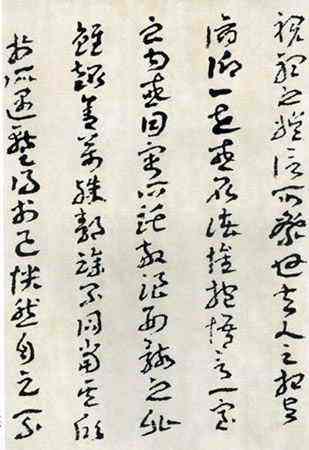 視聽之娛信可樂也夫人之相與
俯仰一世或取諸懷抱悟言一室
之內或因寄所託放浪形骸之外
雖趣舍萬殊靜躁不同當其欣
於所遇暫得於己快然自足不